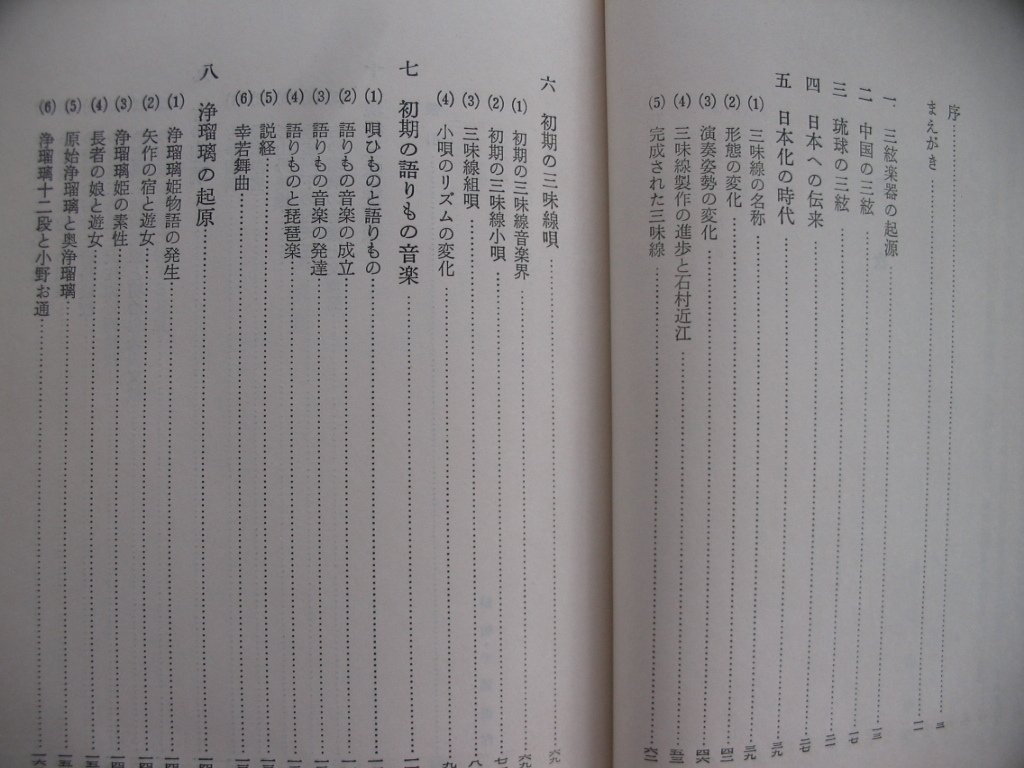 序
まえがき
一 三絃楽器の起源 一三
二 中国の三絃 一七
三 琉球の三絃 二一
四 日本への伝来 二七
五 日本化の時代 三九
(1) 三味線の名称 三九
(2) 形態の変化 四二
(3) 演奏姿勢の変化 四六
(4) 三味線製作の進歩と石村近江 五三
(5) 完成された三味線 六二
六 初期の三味線唄 六九
(1) 初期の三味線音楽界 六九
(2) 初期の三味線小唄
(3) 三味線組唄
(4) 小唄のリズムの変化
七 初期の語りもの音楽
(1) 唄ひものと語りもの
(2) 語りもの音楽の成立
(3) 語りもの音楽の発達
(4) 語りものと琵琶楽
(5) 説経
(6) 幸若舞曲
八 浄瑠璃の起原
(1) 浄瑠璃姫物語の発生
(2) 矢作の宿と遊女
(3) 浄瑠璃姫の素性
(4) 長者の娘と遊女
(5) 原始浄瑠璃と奥浄瑠璃
(6) 浄瑠璃十二段と小野お通